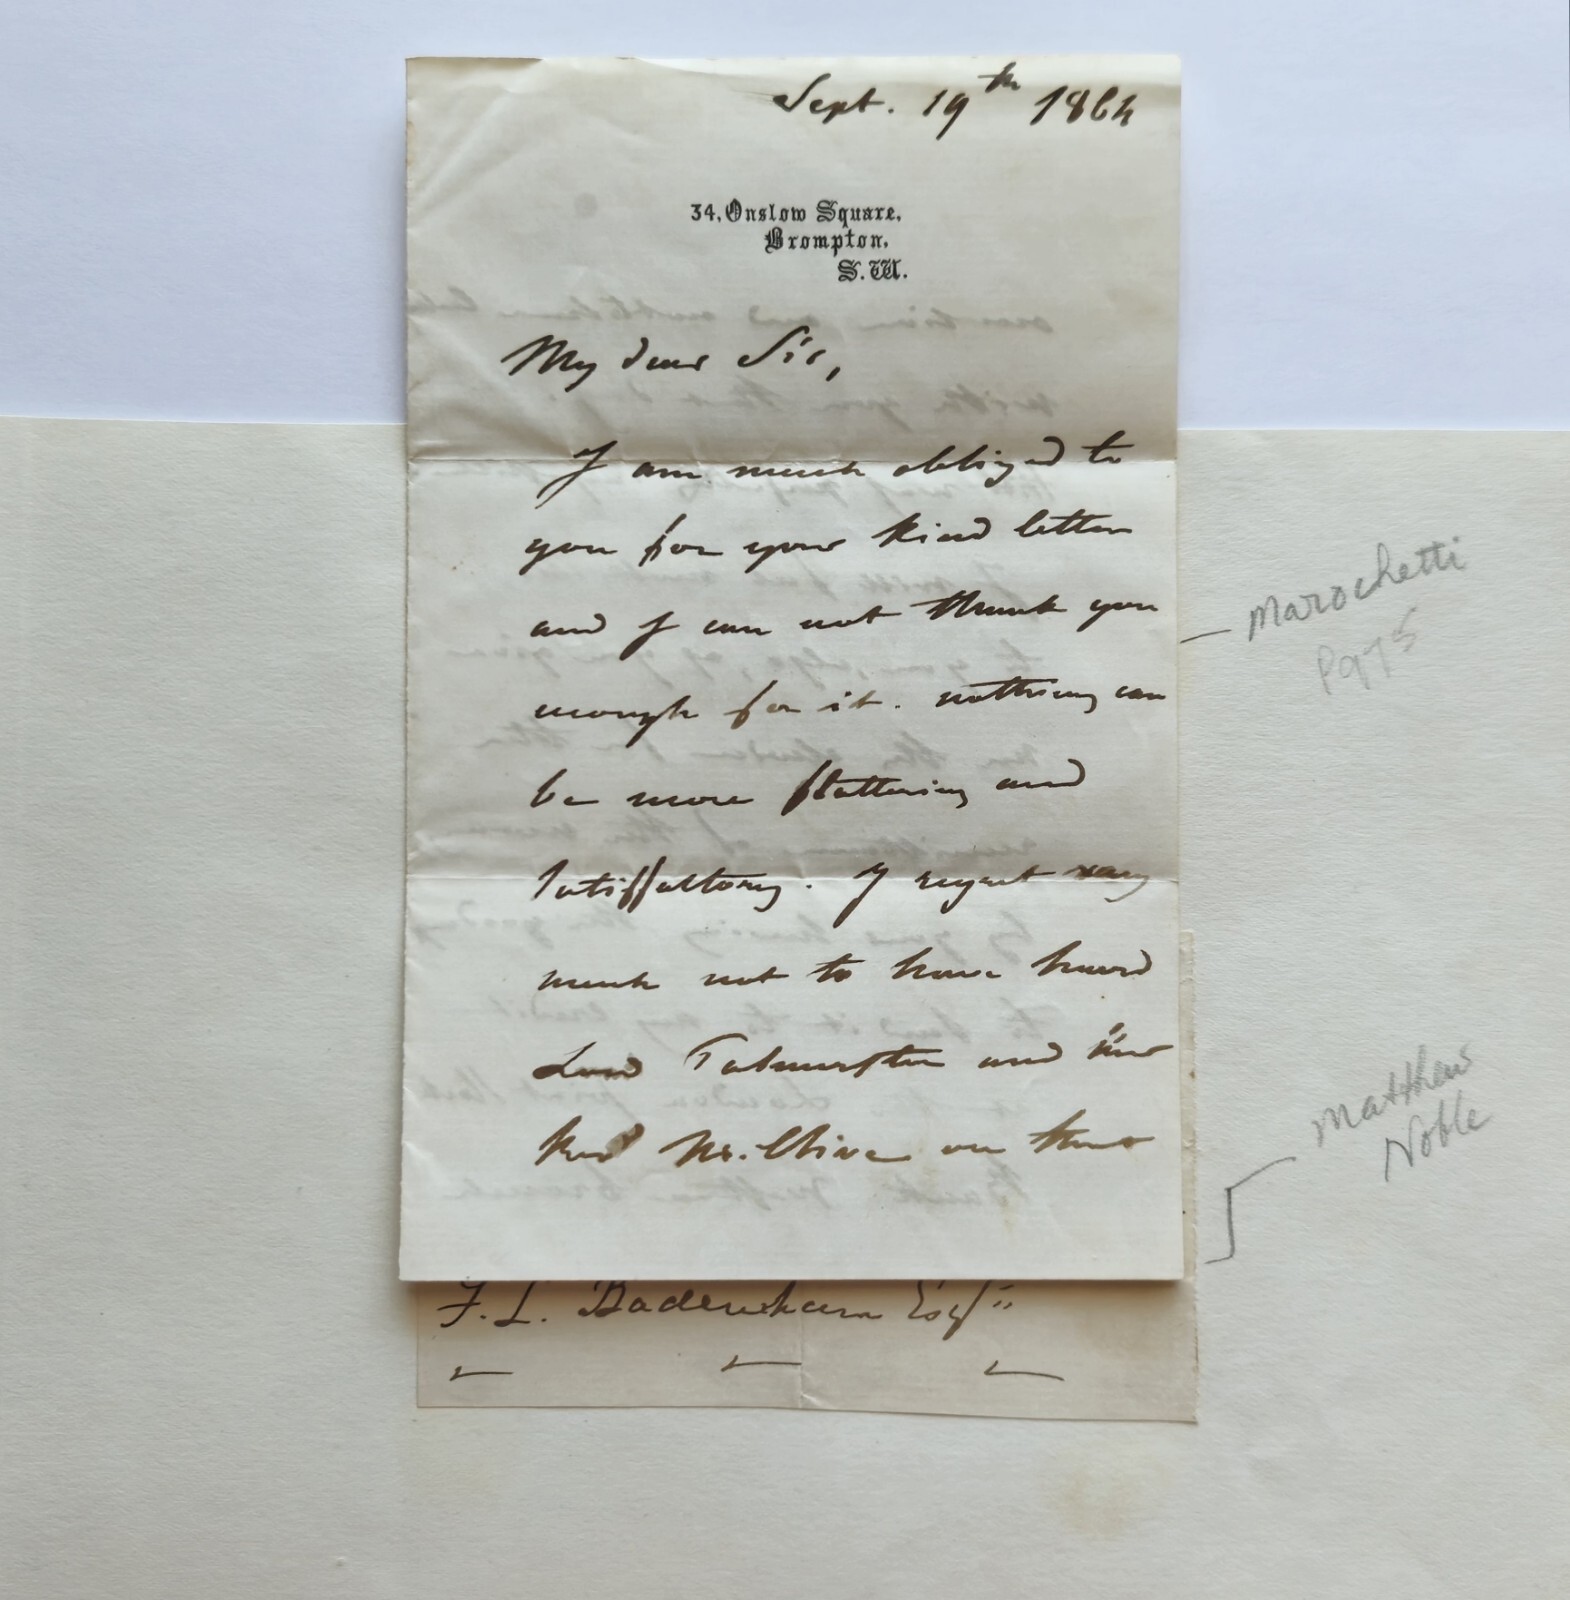 Sept. 19th 1864
34, Onslow Square,
Brompton,
S.W.
My dear Sir,
I am much obliged to
you for your kind letter
and I can not thank you
enough for it. nothing can
be more flattering and
satisffactory. I regret very
much not to have heard
Lord Palmerston and
Mr. Clive on that
F. L. Badenham Esqre
Marochetti
P975
Matthew
Noble